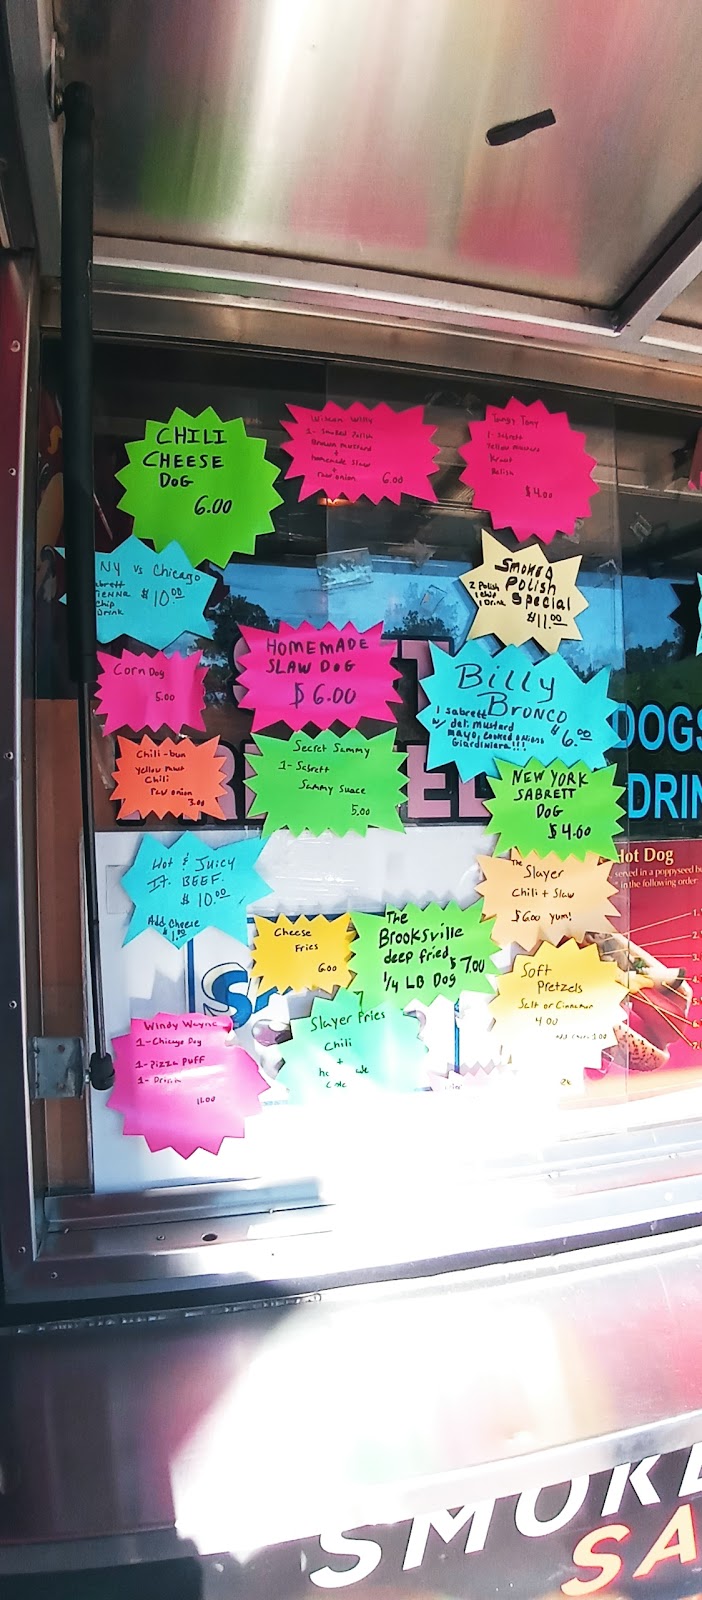 CHILI
CHEESE
DOG
6.00
1- Smoked Polish
Brown mustard
+
homemade slaw
+
raw onion
6.00
Tangy Tony
1- Sabrett
Yellow mustard
Kraut
Relish
$4.00
NY vs Chicago
$10.00
chip
Drink
SMOKED
POLISH
Special
2 Polish
1 chip
1 Drink
$11.00
Corn Dog
5.00
HOMEMADE
SLAW DOG
$6.00
Billy
Bronco
1 sabrett
w/ del. mustard
mayo, cooked onions
Giardiniera!!!
$6.00
Chili-bun
Yellow Must
Chili
raw onion
3.00
Secret Sammy
1- Sabrett
Sammy Suace
5.00
NEW YORK
SABRETT
DOG
DOGS
DRIN
Hot & Juicy
It. BEEF.
$10.00
Add cheese
$1.00
The
Slayer
Chili + Slaw
$6.00 yum!
Hot Dog
served in a poppyseed bu
in the following order:
Cheese
Fries
6.00
The
Brooksville
deep fried
1/4 LB Dog
$7.00
Soft
Pretzels
Salt or Cinnamon
4.00
Slayer Fries
Chili
+
Windy Wayne
1- Chicago Dog
1- Pizza Puff
1- Drink
11.00
SMOKE
SA